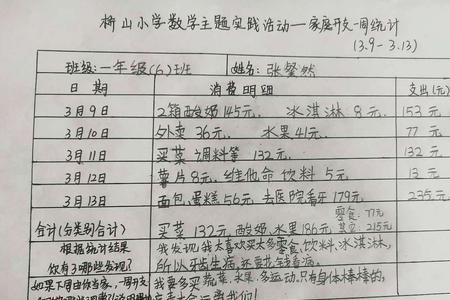 桥山小学数学主题实践活动—家庭开支一周统计
(3.9-3.13)
班级:一年级(6)班 姓名:张馨然
日 期 消 费 明 细 支出(元)
3月9日 2箱酸奶145元. 冰淇淋 8元. 153元
3月10日 外卖 36元. 水果41元. 77 元
3月11日 买菜 调料等 132元. 132 元
3月12日 薯片8元. 维他命 饮料 5元 13 元
3月13日 面包,蛋糕56元 去医院看牙 179元. 235元
零食:77元
合计(分类别合计) 买菜 132元, 酸奶,水果186元, 其它:215元
根据统计结果 我发现我太喜欢买太多零食,饮料,冰淇淋,
你有了哪些发现? 所以牙齿生病,还要花钱看病.
如果下周由你当家,一周开支 我要多买蔬菜,水果,多运动,只有身体棒棒的,